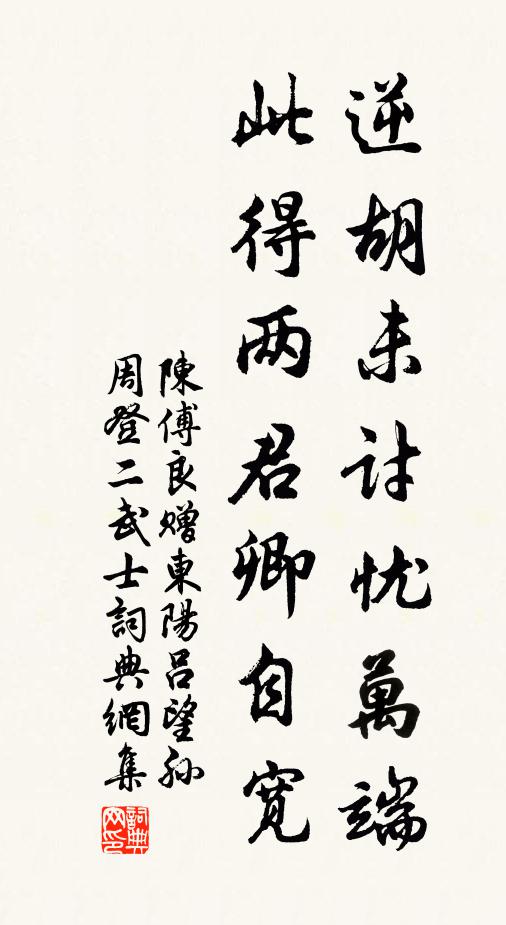 逆胡未討忧萬端
此得两君卿自寛
陳傅良赠東陽吕望孙
周登二武士詞典網集
詞典网印